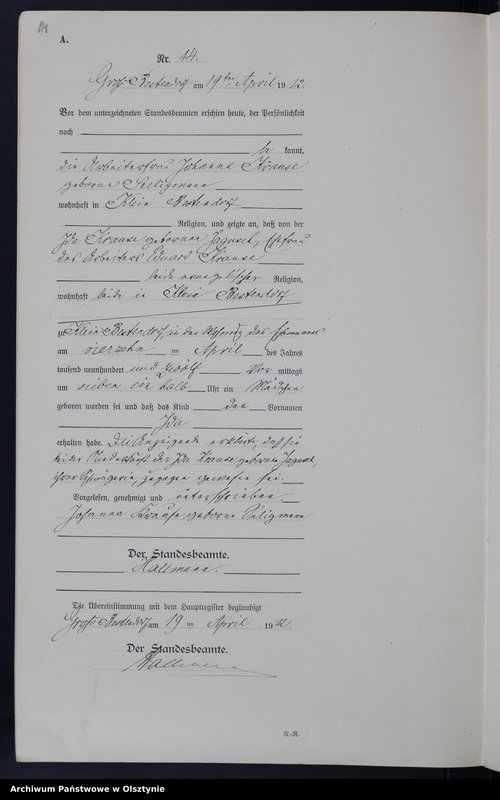 14
A.
Nr. 14.
Groß Bestendorf am 19ten April 1912.
Vor dem unterzeichneten Standesbeamten erschien heute, der Persönlichkeit
nach
be kannt,
die Arbeiterfrau Johanna Krause
geborene Seeligmann
wohnhaft in Klein Bestendorf
Religion, und zeigte an, daß von der
Ida Krause geborene Jagusch, Ehefrau
des Arbeiters Eduard Krause
beide evangelischer Religion,
wohnhaft beide in Klein Bestendorf
zu Klein Bestendorf, in der Wohnung des Ehemannes
am vierzehn ten April des Jahres
tausend neunhundert und zwölf Vor mittags
um sieben ein halb Uhr ein Mädchen
geboren worden sei und daß das Kind den Vornamen
Ida
erhalten habe. Die Anzeigende erklärt, daß sie
bei der Niederkunft der Ida Krause, geborene Jagusch,
ihrer Schwägerin, zugegen gewesen sei.
Vorgelesen, genehmigt und unterschrieben
Johanna Krause geborene Seligmann
Der Standesbeamte.
Hallmann.
Die Übereinstimmung mit dem Hauptregister beglaubigt
Groß Bestendorf am 19 ten April 1912.
Der Standesbeamte.
Hallmann
N.-R.
Archiwum Państwowe w Olsztynie